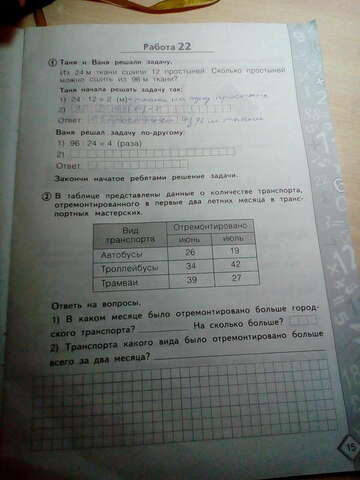 Работа 22
1 Таня и Ваня решали задачу.
Из 24 м ткани сшили 12 простыней. Сколько простыней
можно сшить из 96 м ткани?
Таня начала решать задачу так:
1) 24 : 12 = 2 (м) - ткани на одну простыню
2)
Ответ: из 96 м ткани
Ваня решал задачу по-другому:
1) 96 : 24 = 4 (раза)
2)
Ответ:
Закончи начатое ребятами решение задачи.
2 В таблице представлены данные о количестве транспорта,
отремонтированного в первые два летних месяца в транс-
портных мастерских.
Вид транспорта Отремонтировано
июнь июль
Автобусы 26 19
Троллейбусы 34 42
Трамваи 39 27
Ответь на вопросы.
1) В каком месяце было отремонтировано больше город-
ского транспорта? На сколько больше?
2) Транспорта какого вида было отремонтировано больше
всего за два месяца?
15